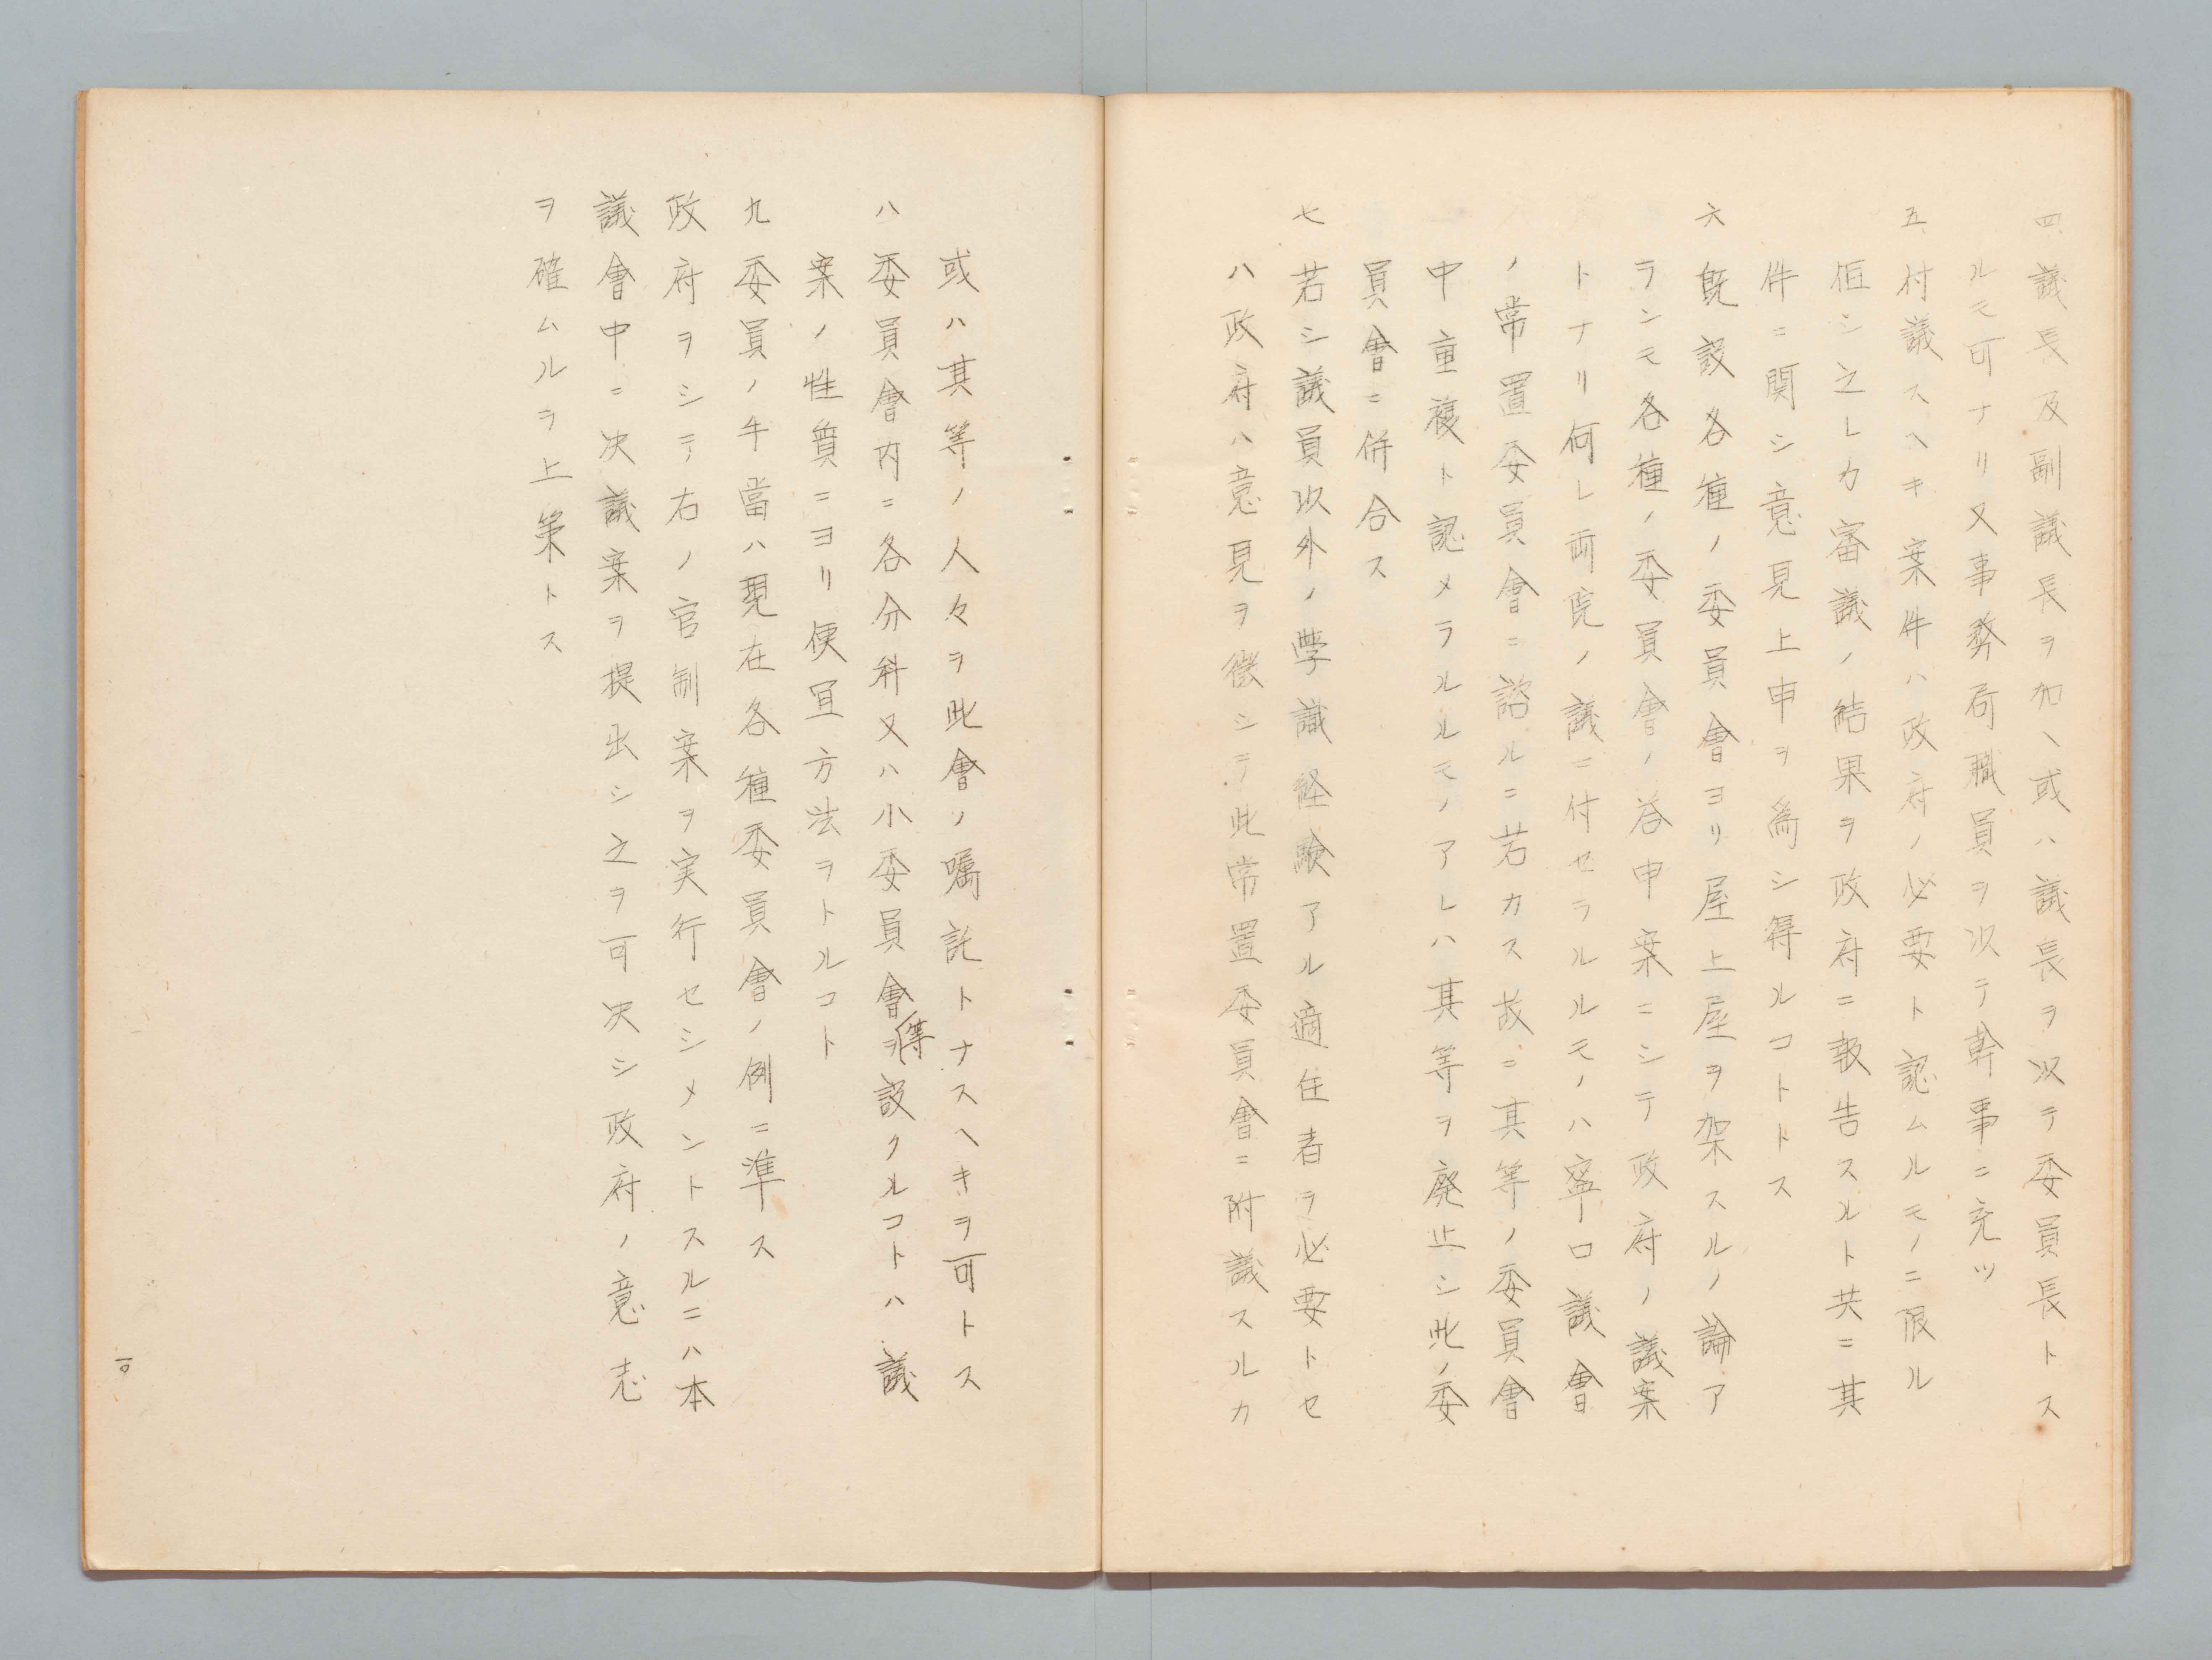 四、議長及副議長ヲ加ヘ或ハ議長ヲ以テ委員長トス
ルモ可ナリ又事務局職員ヲ以テ幹事ニ充ツ
五、付議スヘキ案件ハ政府ノ必要ト認ムルモノニ限ル
但シ之レカ審議ノ結果ヲ政府ニ報告スルト共ニ其
件ニ関シ意見上申ヲ為シ得ルコトトス
六、既設各種ノ委員會ヨリ屋上屋ヲ架スルノ論ア
ランモ各種ノ委員會ノ答申案ニシテ政府ノ議案
トナリ何レ両院ノ議ニ付セラルルモノハ寧ロ議會
ノ常置委員會ニ諮ルニ若カス故ニ其等ノ委員會
中重複ト認メラルルモノアレハ其等ヲ廃止シ此ノ委
員會ニ併合ス
七、若シ議員以外ノ學識経験アル適任者ヲ必要トセ
ハ政府ハ意見ヲ徴シテ此常置委員會ニ附議スルカ
或ハ其等ノ人々ヲ此會ノ嘱託トナスヘキヲ可トス
八、委員會内ニ各分科又ハ小委員會ヲ得設クルコトハ議
案ノ性質ニヨリ便宜方法ヲトルコト
九、委員ノ手當ハ現在各種委員會ノ例ニ準ス
政府ヲシテ右ノ官制案ヲ実行セシメントスルニハ本
議會中ニ決議案ヲ提出シ之ヲ可決シ政府ノ意志
ヲ確ムルヲ上策トス